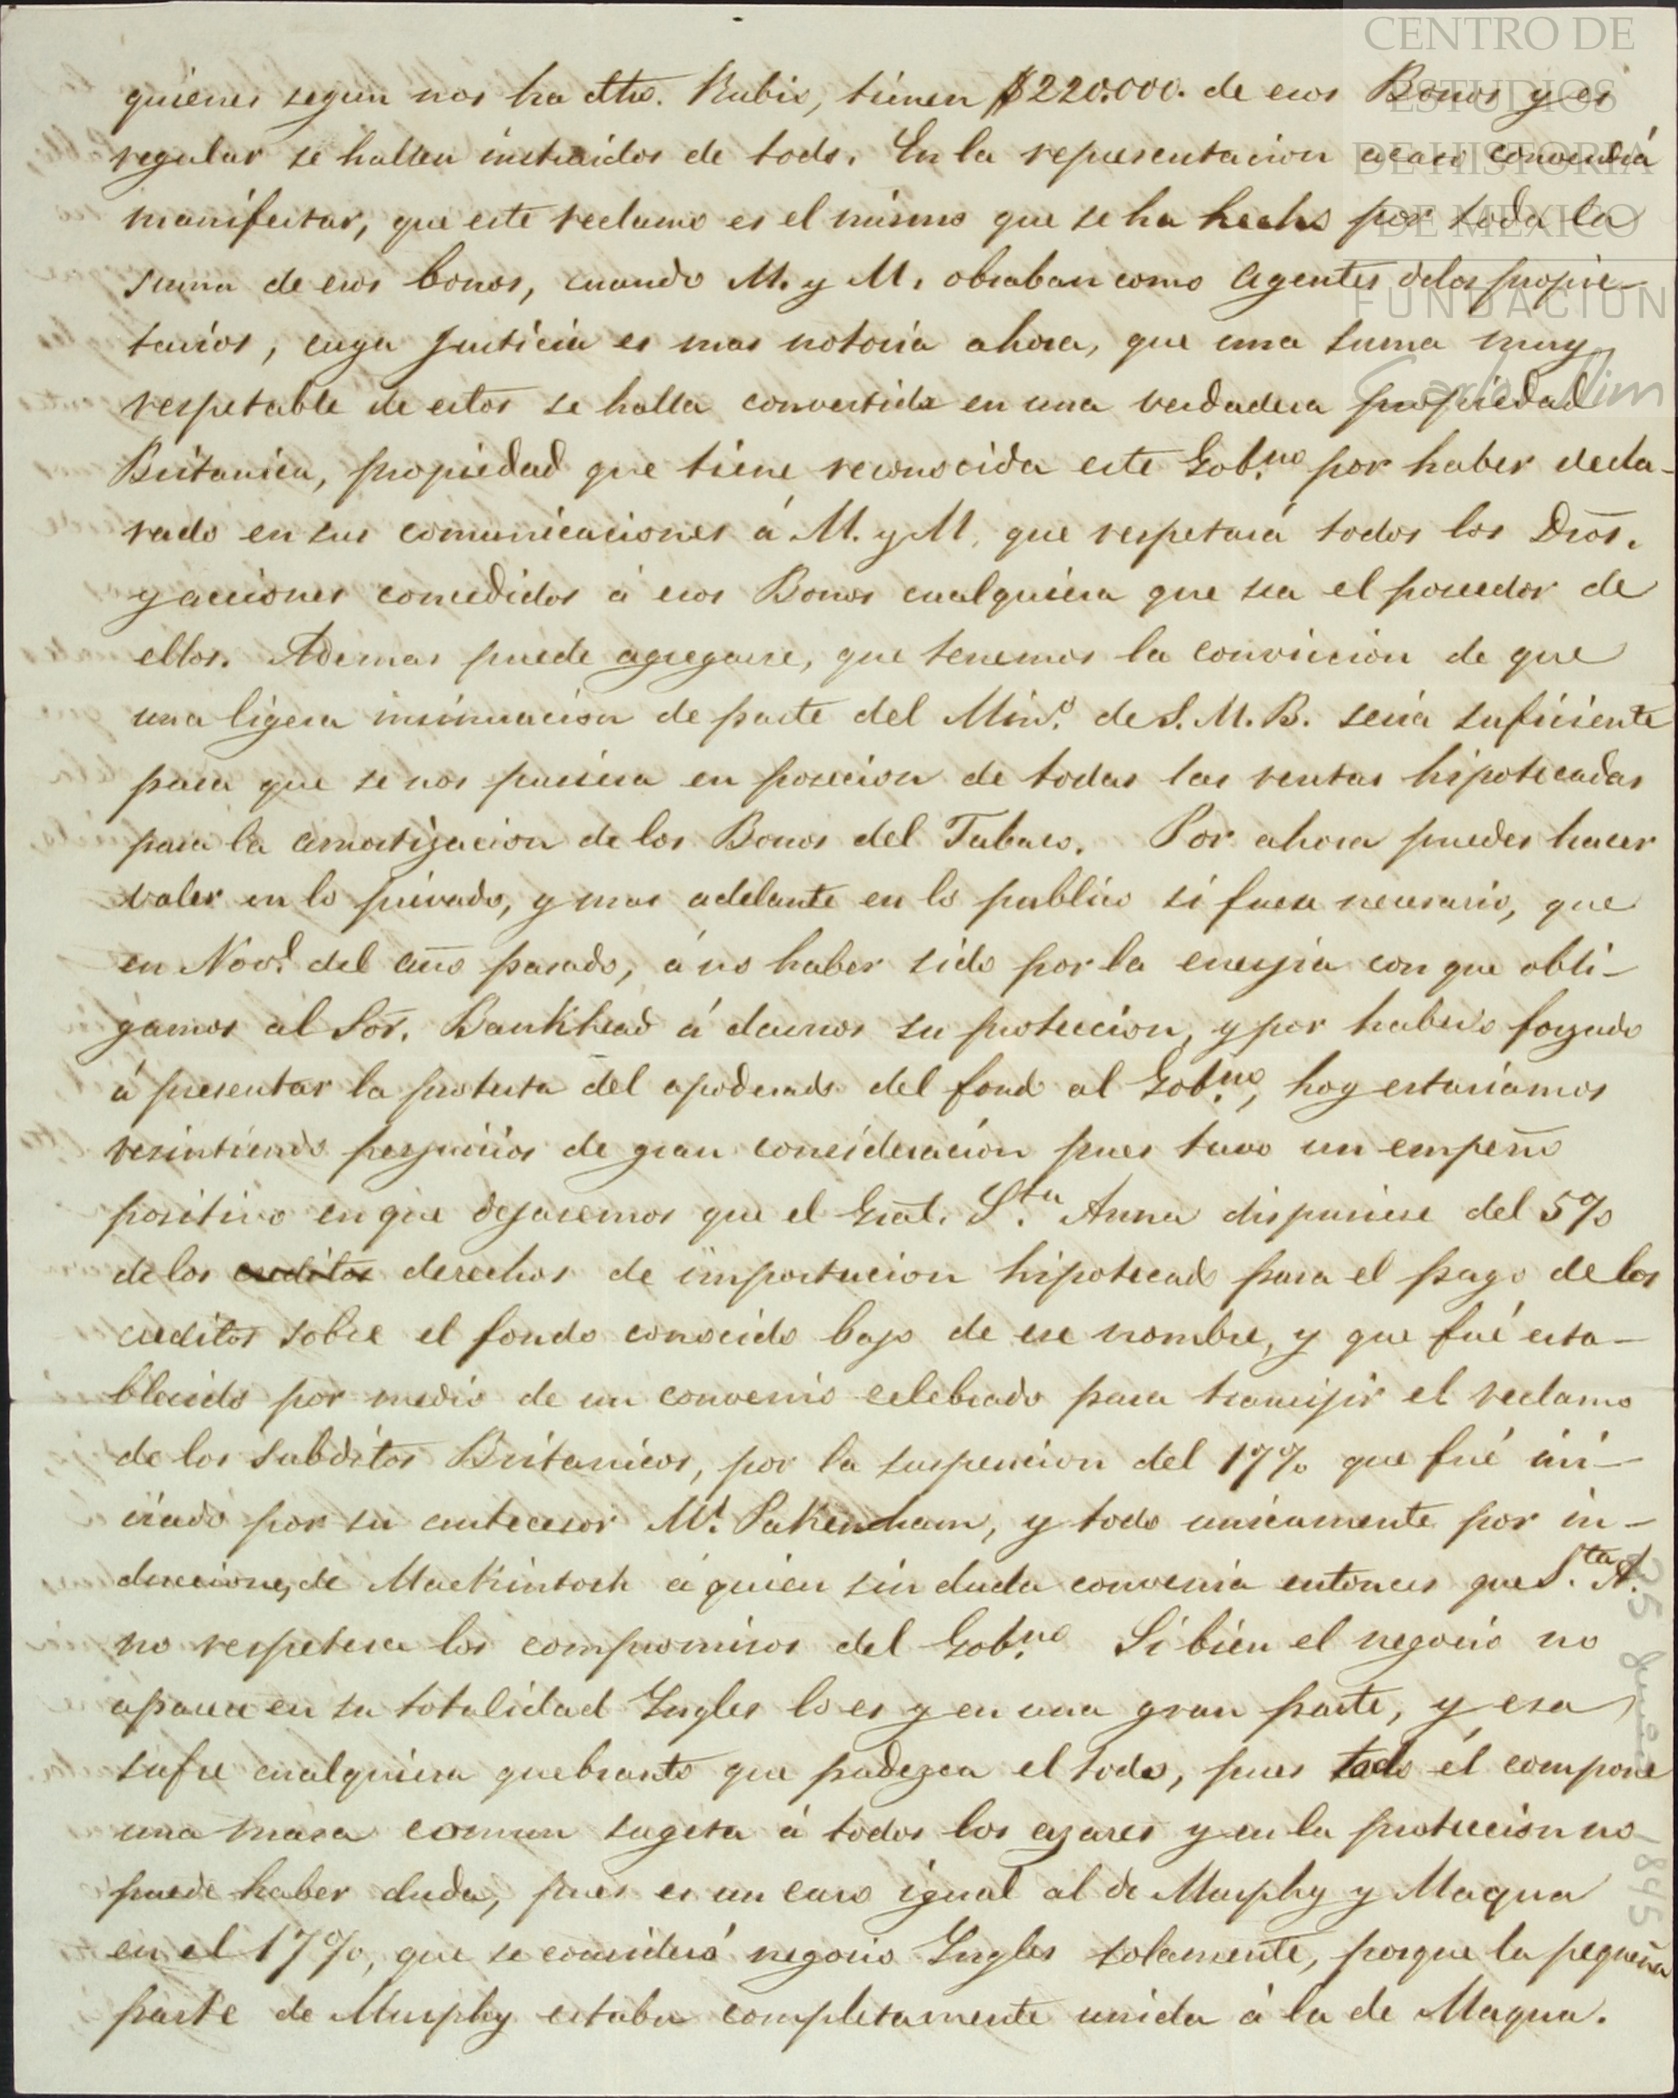 CENTRO DE
ESTUDIOS
DE HISTORIA
DE MEXICO
FUNDACION
Carlos Slim
quienes segun nos ha dho. Rubio, tienen $220.000. de esos Bonos y es
regular se hallen instruidos de todo. En la representacion acaso convendrá
manifestar, que este reclamo es el mismo que se ha hecho por toda la
suma de esos bonos, cuando M. y M. obraban como Agentes delos propie-
tarios, cuya justicia es mas notoria ahora, que una suma muy
respetable de estos se halla convertida en una verdadera propiedad
Britanica, propiedad que tiene reconocida este Gob.no por haber decla-
rado en sus comunicaciones á M. y M. que respetará todos los Dros.
y acciones concedidos á esos Bonos cualquiera que sea el poseedor de
ellos. Ademas puede agregarse, que tenemos la conviccion de que
una ligera insinuacion de parte del Min.o de S. M. B. seria suficiente
para que se nos pusiera en posecion de todas las rentas hipotecadas
para la amortizacion de los Bonos del Tabaco. Por ahora puedes hacer
valer en lo privado, y mas adelante en lo publico si fuere necesario, que
en Nov.e del año pasado, á no haber sido por la energia con que obli-
gamos al Sor. Bankhead á darnos su proteccion, y por haberlo forzado
á presentar la protesta del apoderado del fondo al Gob.no, hoy estariamos
resintiendo perjuicios de gran concideracion pues tuvo un empeño
positivo en que dejasemos que el Gral. S.ta Anna dispusiese del 5%
de los creditos derechos de importacion hipotecado para el pago de los
creditos sobre el fondo conocido bajo de ese nombre, y que fué esta-
blecido por medio de un convenio celebrado para transijir el reclamo
de los subditos Britanicos, por la suspencion del 17% que fué ini-
ciado por su antecesor Mr. Pakenham, y todo unicamente por in-
ducciones de Mackintosh á quien sin duda convenia entonces que S.ta A.
no respetara los compromisos del Gob.no Si bien el negocio no
aparece en su totalidad Yngles lo es y en una gran parte, y esa
sufre cualquiera quebranto que padezca el todo, pues todo él compone
una masa comun sugeta á todos los azares y en la proteccion no
puede haber duda, pues es un caso igual al de Murphy y Maqua
en el 17%, que se consideró negocio Yngles solamente, porque la pequeña
parte de Murphy estaba completamente unida á la de Maqua.
25
1845